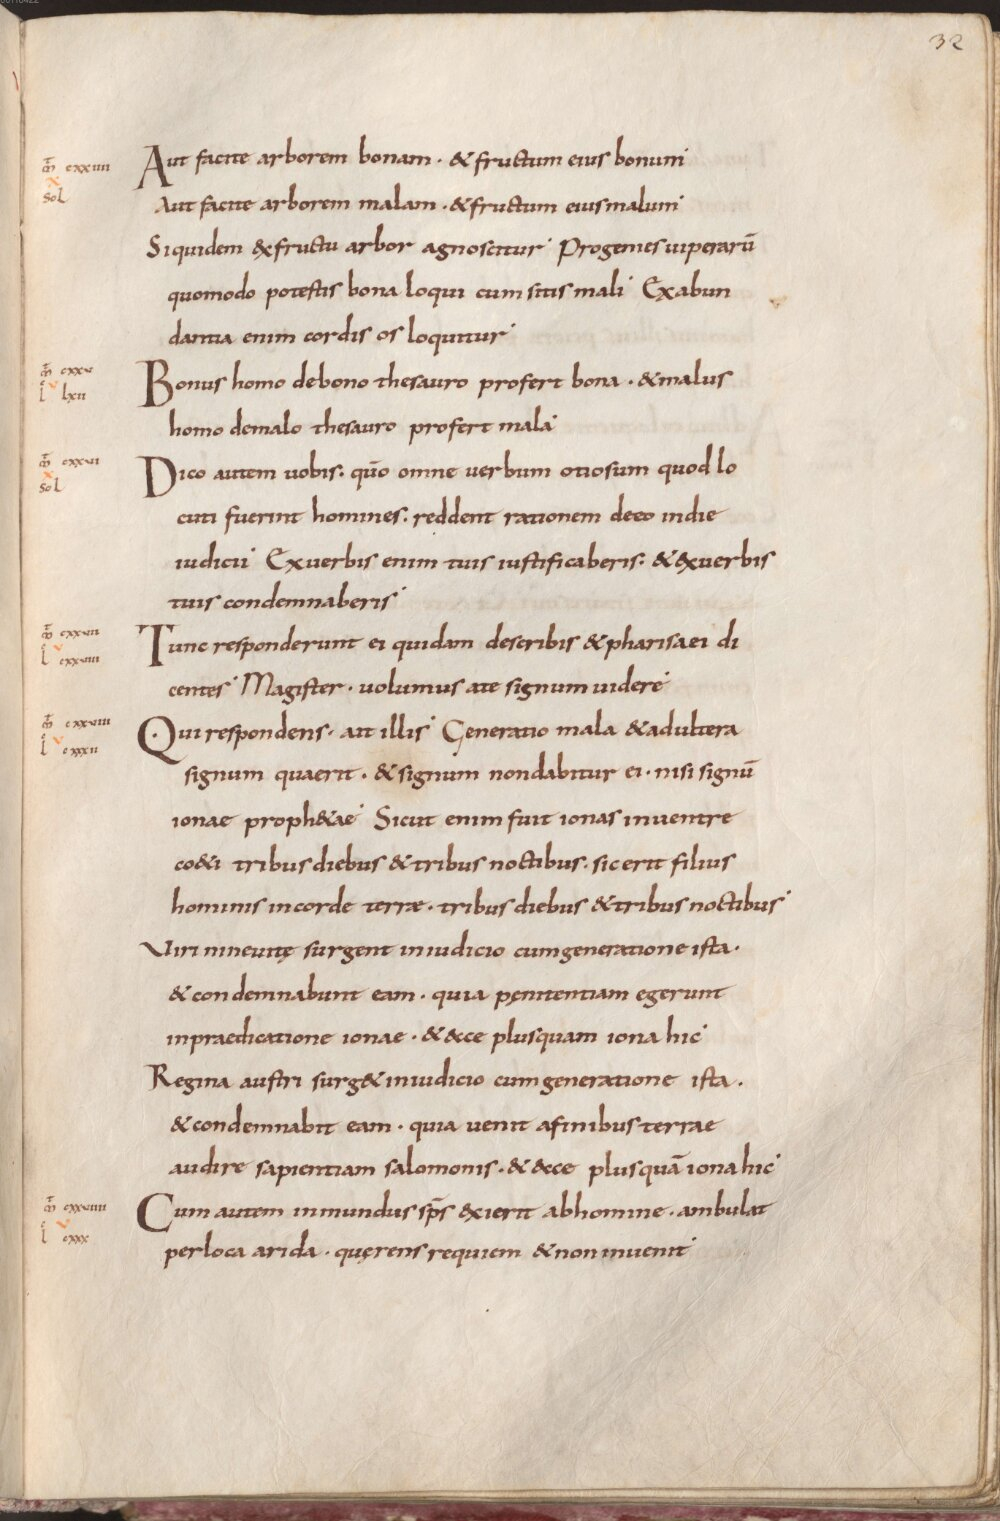 32
m̄ cxxiiii
x
sol
Aut facite arborem bonam · & fructum eius bonum
Aut facite arborem malam · & fructum eius malum
Siquidem ex fructu arbor agnoscitur Progenies uiperarū
quomodo potestis bona loqui cum sitis mali Exabun
dantia enim cordis os loquitur
m̄ cxxv
l v lxii
Bonus homo debono thesauro profert bona · & malus
homo demalo thesauro profert mala
m̄ cxxvi
x
sol
Dico autem uobis · qūo omne uerbum otiosum quod lo
cuti fuerint homines · reddent rationem deeo indie
iudicii Exuerbis enim tuis iustificaberis · & exuerbis
tuis condemnaberis
m̄ cxxvii
l v cxxviiii
Tunc responderunt ei quidam describis & pharisaei di
centes Magister · uolumus ate signum uidere
m̄ cxxviii
l v cxxxii
Qui respondens · ait illis Generatio mala & adultera
signum quaerit · & signum nondabitur ei · nisi signū
ionae proph&ae Sicut enim fuit ionas inuentre
co&i tribus diebus & tribus noctibus · sic erit filius
hominis incorde terræ · tribus diebus & tribus noctibus
Viri nineuitę surgent iniudicio cumgeneratione ista ·
& condemnabunt eam · quia pęnitentiam egerunt
inpraedicatione ionae · & ecce plusquam iona hic
Regina austri surg& iniudicio cumgeneratione ista ·
& condemnabit eam · quia uenit afinibus terrae
audire sapientiam salomonis · & ecce plusquā iona hic
m̄ cxxviiii
l v cxxx
Cum autem inmundus sp̄s exierit abhomine · ambulat
perloca arida · quęrens requiem & non inuenit